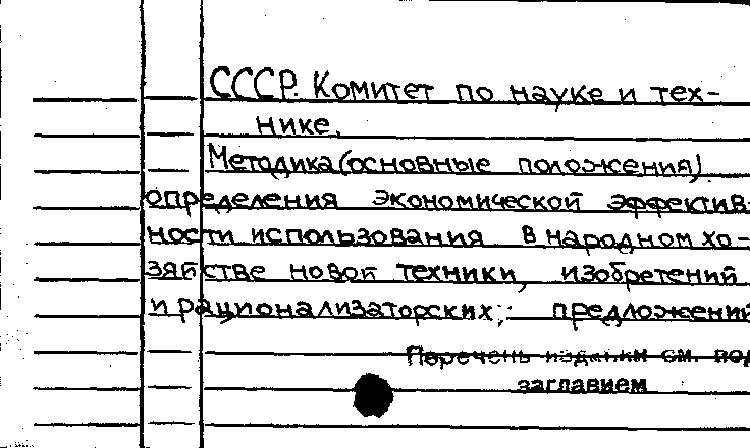 СССР. Комитет по науке и тех-
нике.
Методика (основные положения)
определения экономической эффектив-
ности использования в народном хо-
зяйстве новой техники, изобретений
и рационализаторских предложений
Перечень издании см. под
заглавием